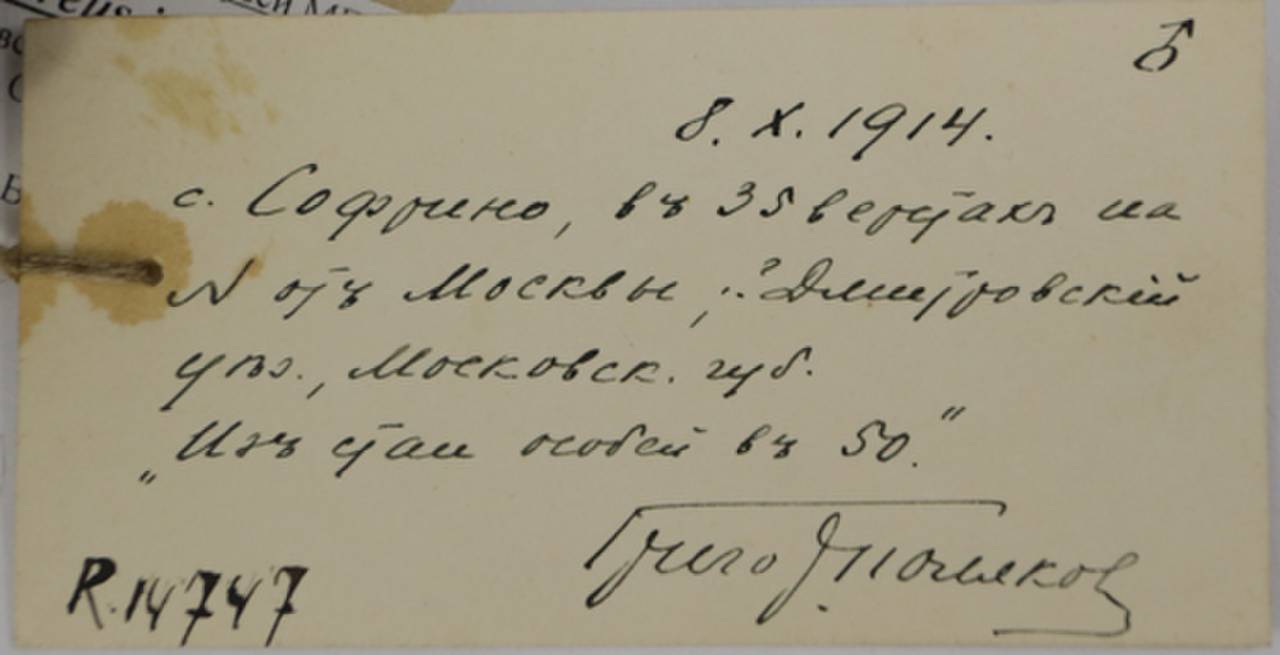 ♂
8. X. 1914.
с. Софрино, въ 35 верстахъ на
N отъ Москвы, :? Дмитровскій
уѣз., Московск. губ.
„Изъ стаи особей въ 50.“
Григо Поляков
R.14747